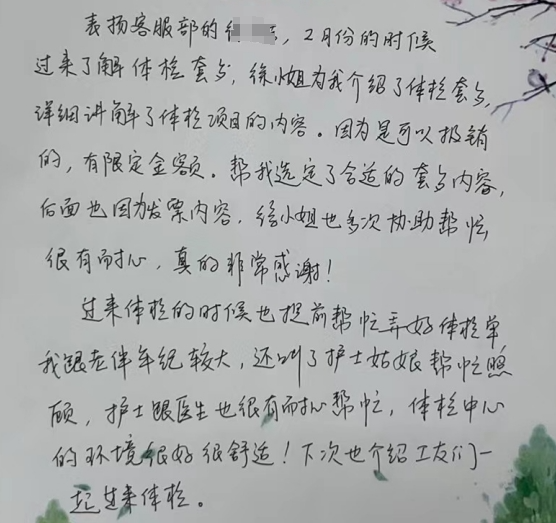 表扬客服部的徐，2月份的时候
过来了解体检套餐，徐小姐为我介绍了体检套餐，
详细讲解了体检项目的内容。因为是可以报销
的，有限定金额。帮我选定了合适的套餐内容，
后面也因为发票内容，徐小姐也多次协助帮忙，
很有耐心，真的非常感谢！
过来体检的时候也提前帮忙弄好体检单，
我跟老伴年纪较大，还叫了护士姑娘帮忙照
顾，护士跟医生也很有耐心帮忙，体检中心
的环境很好很舒适！下次也介绍工友们一
起过来体检。